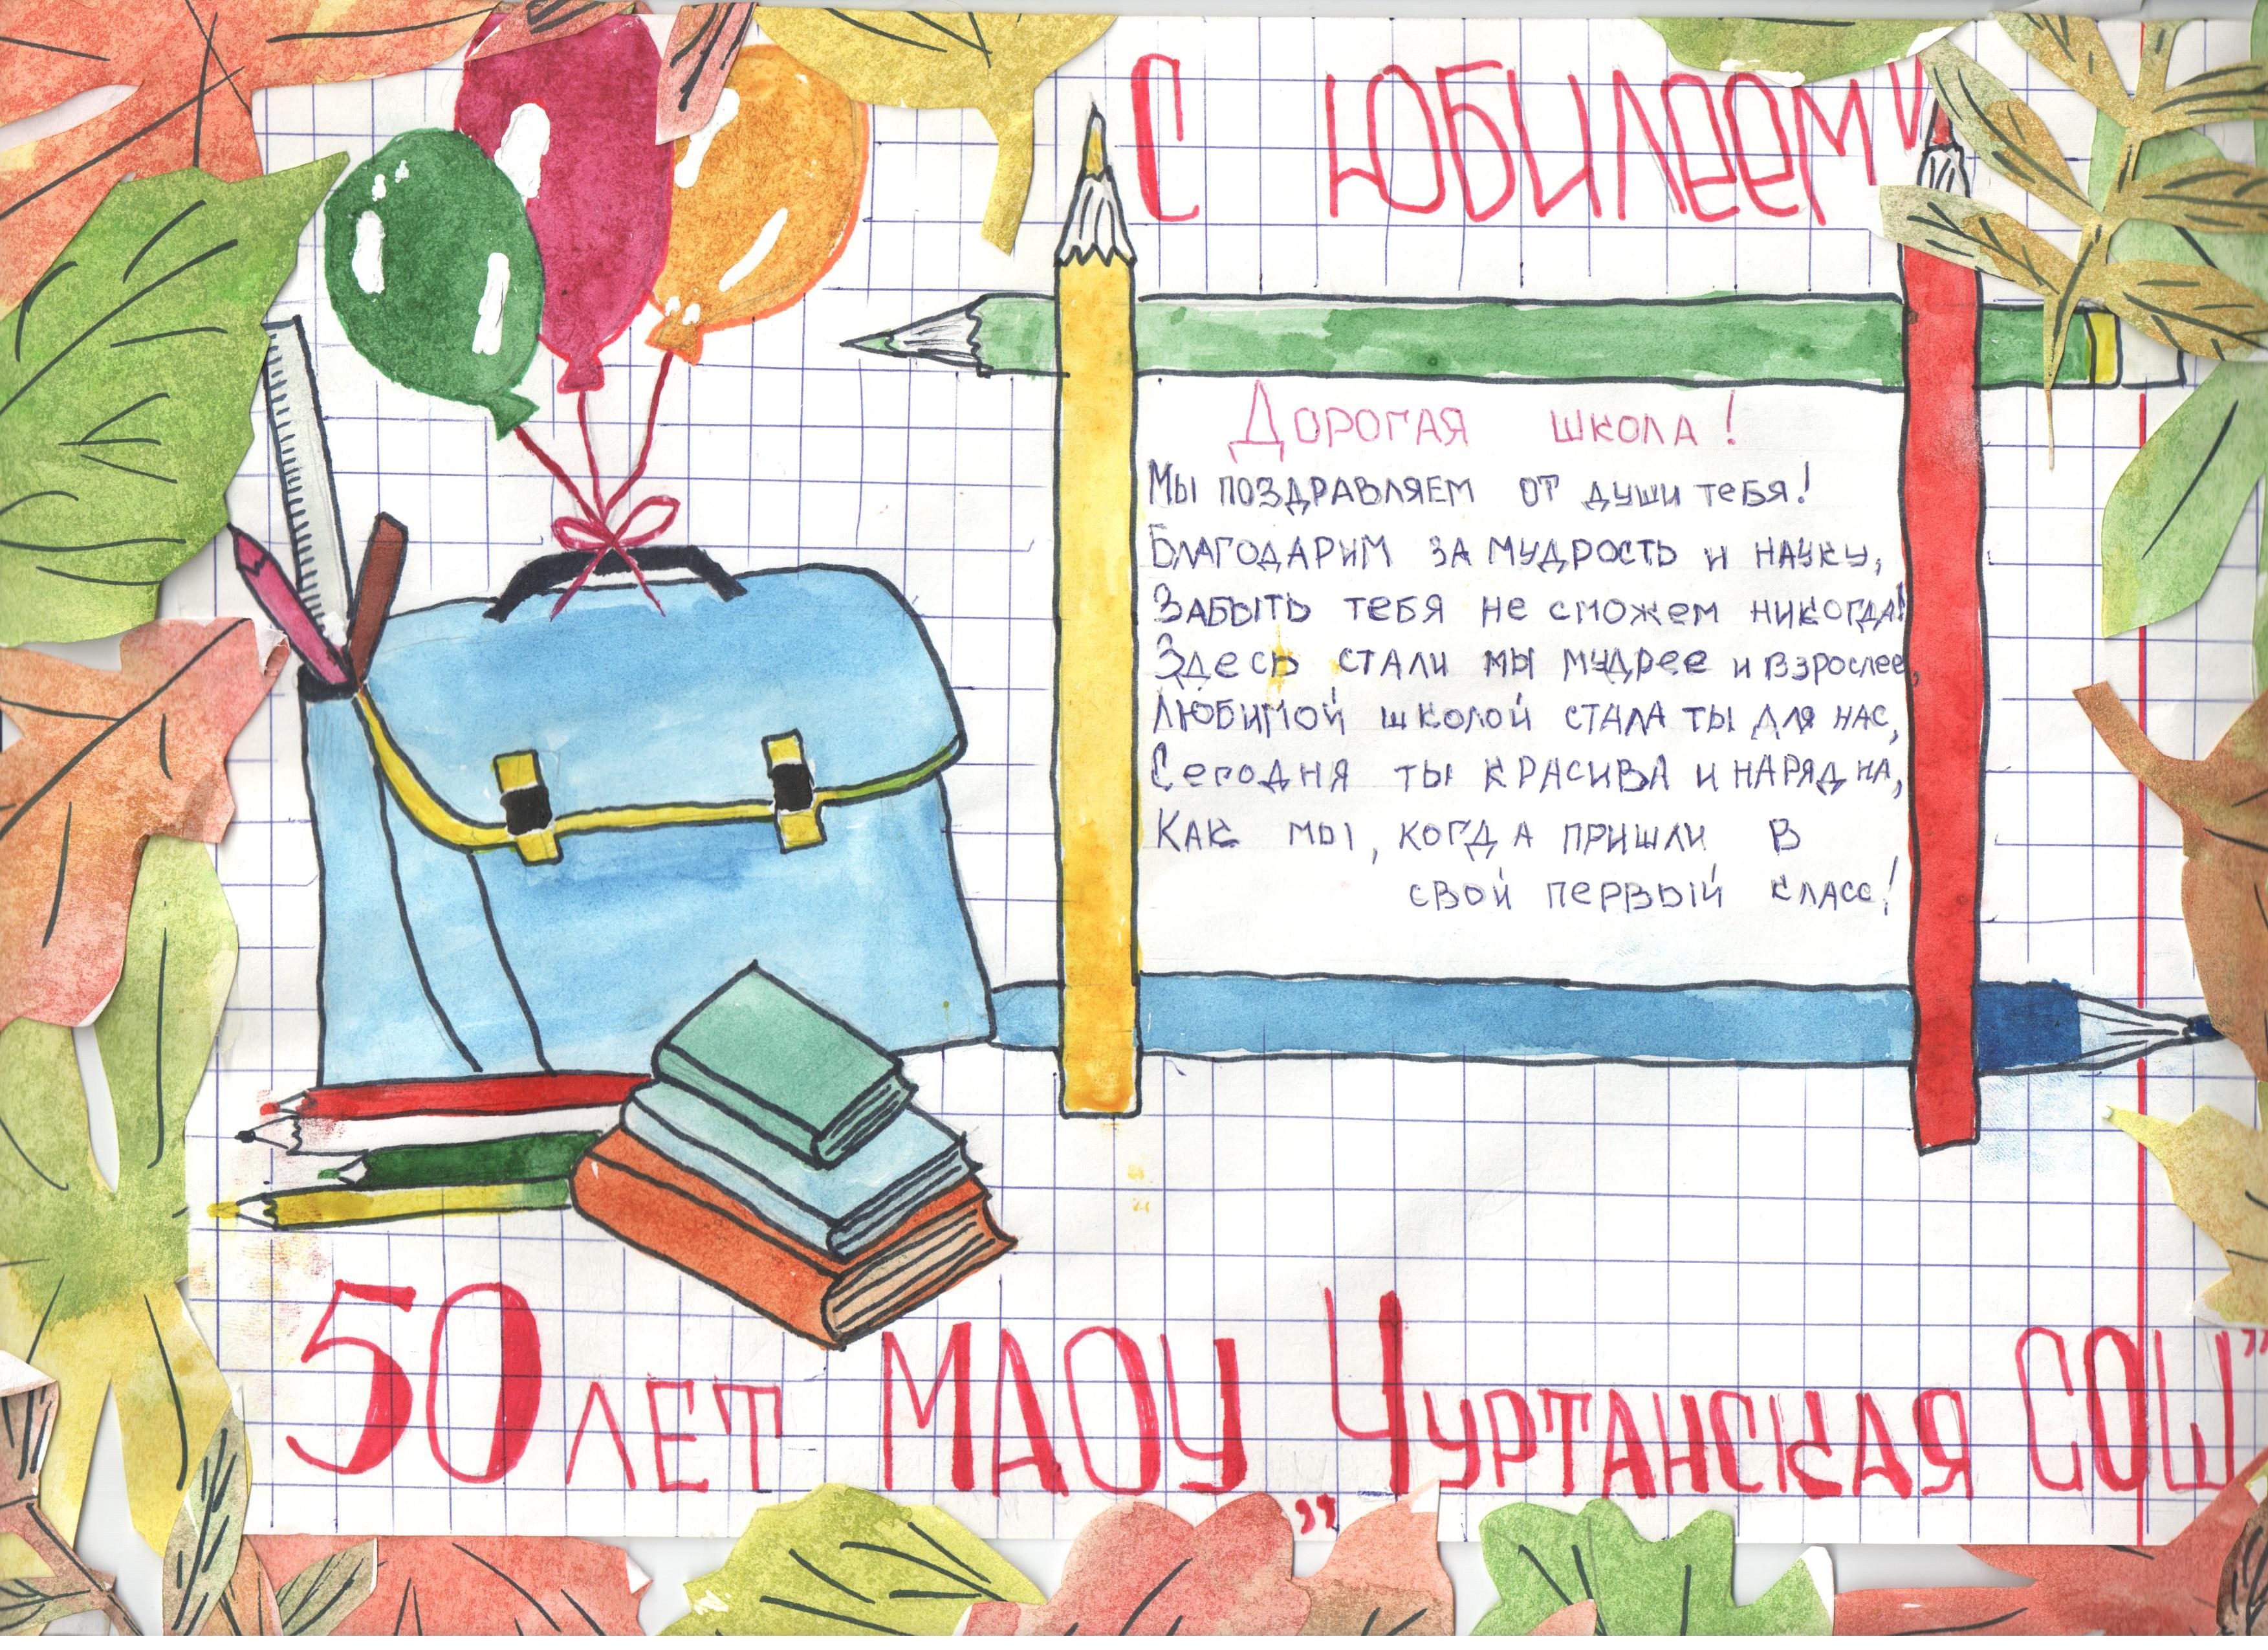 С ЮБИЛЕЕМ
Дорогая школа!
Мы поздравляем от души тебя!
Благодарим за мудрость и науку,
Забыть тебя не сможем никогда!
Здесь стали мы мудрее и взрослее,
Любимой школой стала ты для нас,
Сегодня ты красива и нарядна,
Как мы, когда пришли в
свой первый класс!
50 ЛЕТ МАОУ „Чуртанская СОШ"